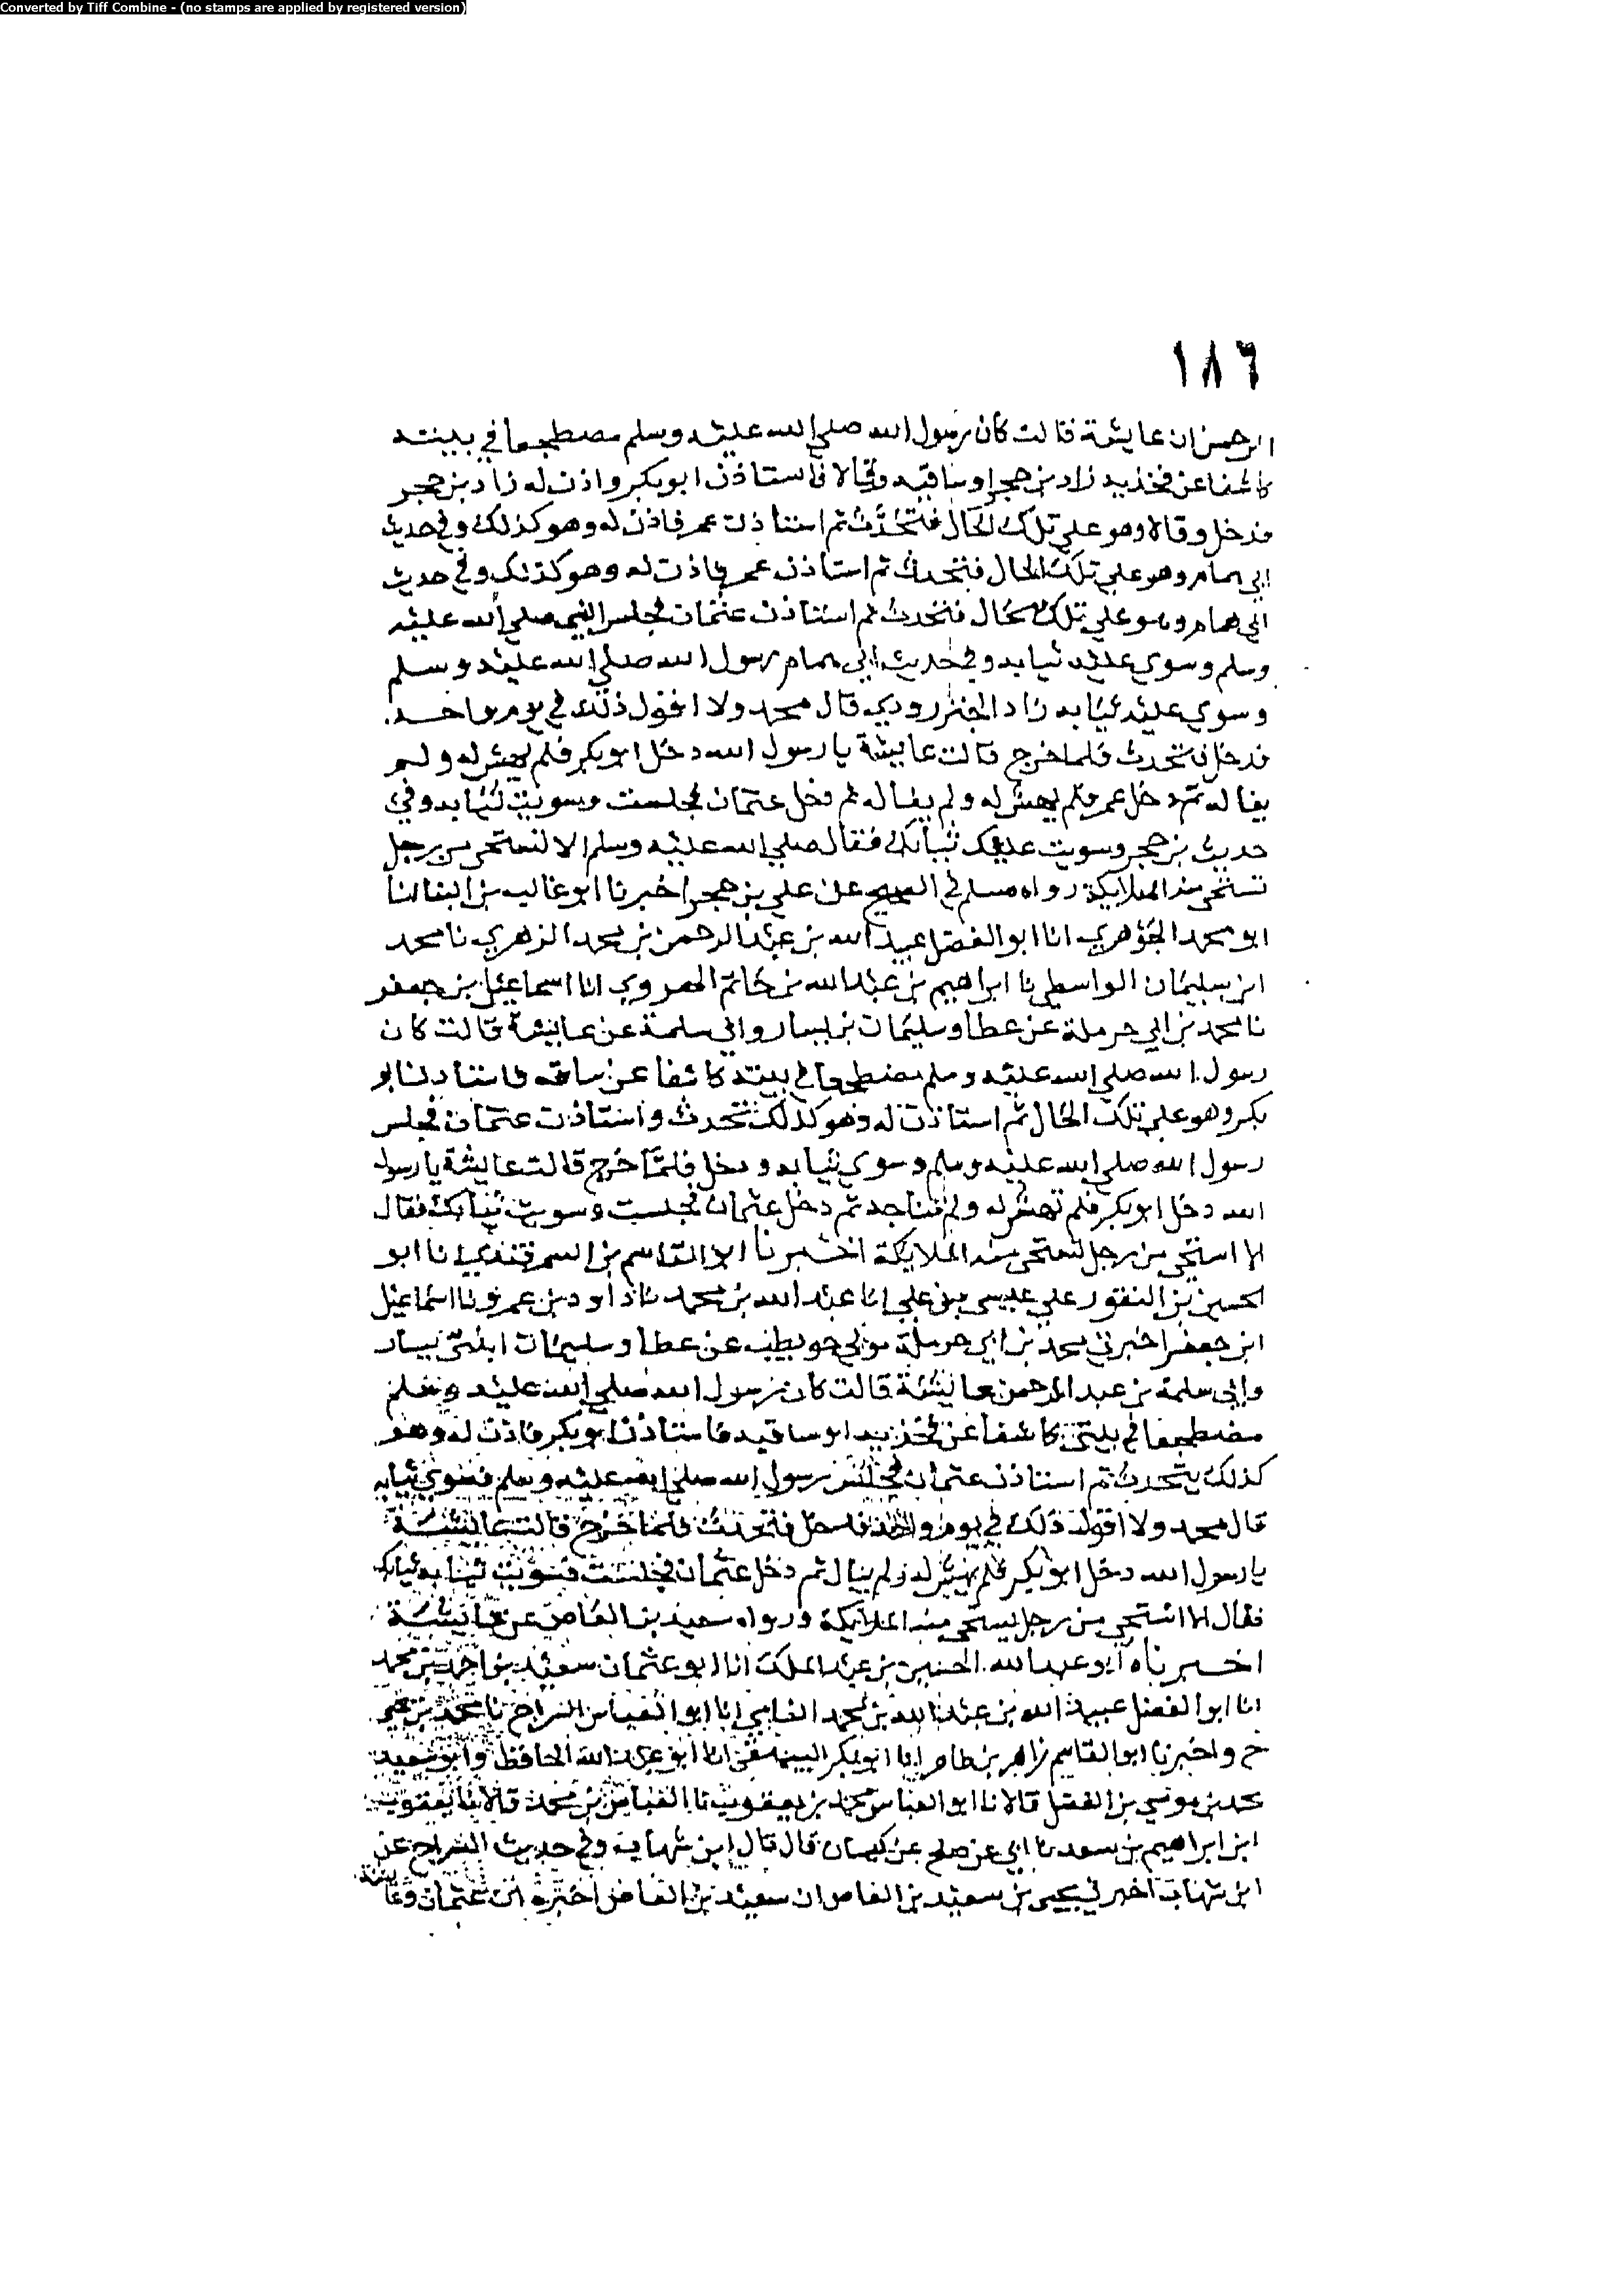 Converted by Tiff Combine - (no stamps are applied by registered version)
١٨٦
الرحمن ان عايشة قالت كان رسول الله صلي الله عليه وسلم مضطجعا في بيته
كاشفا عن فخذيه زاد بن حجر اوساقيه وقالا فاستاذن ابو بكر واذن له زاد بن حجر
فدخل وقالا وهو علي تلك الحال فتحدث ثم استاذن عمر فاذن له وهو كذلك وفي حديث
ابي همام وهو علي تلك الحال فتحدث ثم استاذن عمر فاذن له وهو كذلك وفي حديث
ابي همام وهو علي تلك الحال فتحدث ثم استاذن عثمان فجلس النبي صلي الله عليه
وسلم وسوي عليه ثيابه وفي حديث ابي همام رسول الله صلي الله عليه وسلم
وسوي عليه ثيابه زاد الجنزرودي قال محمد ولا اقول ذلك في يوم واحد
فدخل فتحدث فلما خرج قالت عايشة يا رسول الله دخل ابو بكر فلم تهش له ولم
يقاله ثم دخل عمر فلم تهش له ولم يقاله ثم دخل عثمان فجلست وسويت ثيابه وفي
حديث بن حجر وسويت عليك ثيابك فقال صلي الله عليه وسلم الا نستحي من رجل
تستحي منه الملايكة رواه مسلم في الصحيح عن علي بن حجر اخبرنا ابو غالب بن البنا انا
ابو محمد الجوهري انا ابو الفضل عبيد الله بن عبد الرحمن بن محمد الزهري نا محمد
ابن سليمان الواسطي نا ابراهيم بن عبد الله بن حاتم الهروي انا اسماعيل بن جعفر
نا محمد بن ابي حرملة عن عطا وسليمان بن يسار وابي سلمة عن عايشة قالت كان
رسول الله صلي الله عليه وسلم مضطجعا في بيته كاشفا عن ساقه فاستاذن ابو
بكر وهو علي تلك الحال ثم استاذن له وهو كذلك تتحدث واستاذن عثمان فجلس
رسول الله صلي الله عليه وسلم وسوي ثيابه ودخل فلما خرج قالت عايشة يا رسول
الله دخل ابو بكر فلم تهش له ولم ثم دخل عثمان فجلست وسويت ثيابك فقال
الا استحي من رجل تستحي منه الملايكة اخبرنا ابو القاسم بن السمرقندي انا ابو
الحسين بن النقور علي عيسي بن علي انا عبد الله بن محمد نا داود بن عمرو نا اسماعيل
ابن جعفر اخبرني محمد بن ابي حرملة مولي حويطب عن عطا وسليمان ابني يسار
وابي سلمة بن عبد الرحمن عايشة قالت كان رسول الله صلي الله عليه وسلم
مضطجعا في بيتي كاشفا عن فخذيه او ساقيه فاستاذن ابو بكر فاذن له وهو
كذلك يتحدث ثم استاذن عثمان فجلس رسول الله صلي الله عليه وسلم فسوي ثيابه
قال محمد ولا اقول ذلك في يوم واحد فدخل فتحدث فلما خرج قالت عايشة
يا رسول الله دخل ابو بكر فلم تهش له ولم يبال ثم دخل عثمان فجلست فسويت ثيابك
فقال الا استحي من رجل يستحي منه الملايكة ورواه سعيد بن العاص عن عايشة
اخبرناه ابو عبد الله الحسين بن عبد الملك انا ابو عثمان سعيد بن احمد بن محمد
انا ابو الفضل عبيد الله بن عبد الله بن محمد الفامي انا ابو العباس السراج نا محمد بن
ح واخبرنا ابو القاسم زاهر بن طاهر انا ابو بكر البيهقي انا ابو عبد الله الحافظ وابو سعيد
محمد بن موسي بن الفضل قالا نا ابو العباس محمد بن يعقوب نا العباس بن محمد قالا نا يعقوب
ابن ابراهيم بن سعد نا ابي عن صلح عن كيسان قال قال ابن شهاب وفي حديث السراج عن
ابن شهاب اخبرني يحيي بن سعيد بن العاص ان سعيد بن العاص اخبره ان عثمان وعايشة